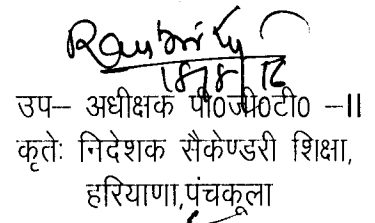 18/8/12
उप– अधीक्षक पी0जी0टी0 –II
कृतेः निदेशक सैकेण्डरी शिक्षा,
हरियाणा,पंचकूला